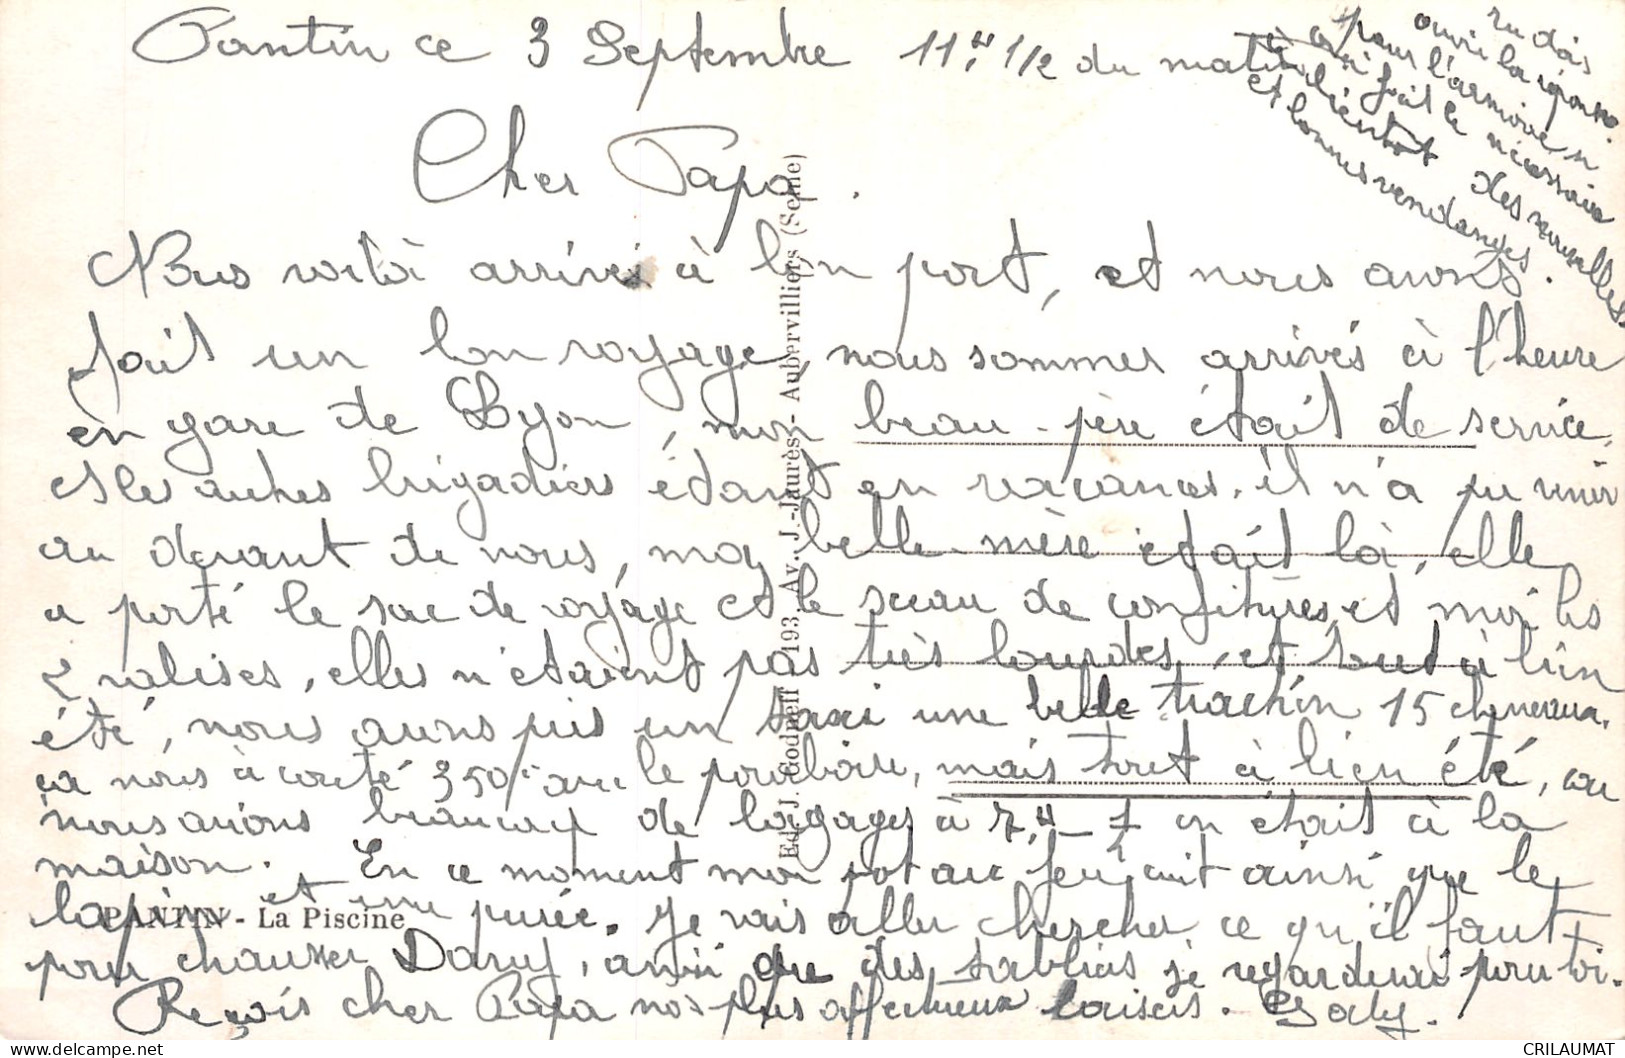 Pantin ce 3 Septembre 11H 1/2 du matin
Cher Papa.
Nous voilà arrivés à bon port, et nous avons
fait un bon voyage, nous sommes arrivés à l'heure
en gare de Lyon, mon beau-père était de service,
et les autres brigadiers étant en vacances, il n'a pu venir
au devant de nous, ma belle-mère était là, elle
a porté le sac de voyage et le sceau de confitures et moi les
2 valises, elles n'étaient pas très lourdes, et tout à bien
été, nous avons pris un taxi une belle traction 15 chevaux,
ça nous à couté 350f avec le pourboire, mais tout à bien été, car
nous avions beaucoup de bagages à 7H en était à la
maison. En ce moment mon pot au feu cuit ainsi que le
lapin et une purée. Je vais aller chercher ce qu'il faut
pour chausser Dany, ainsi que des sabliers je regarderai pour toi.
Reçois cher Papa nos plus affectueux baisers. Gaby.
tu dois
avoir la réponse
pour l'armoire, si
ceci fait le nécessaire
à bientôt des nouvelles
et bonnes vendanges.
Ed. J. Godneff - 193, Av. J.-Jaurès - Aubervilliers (Seine)
PANTIN - La Piscine
CRILAUMAT